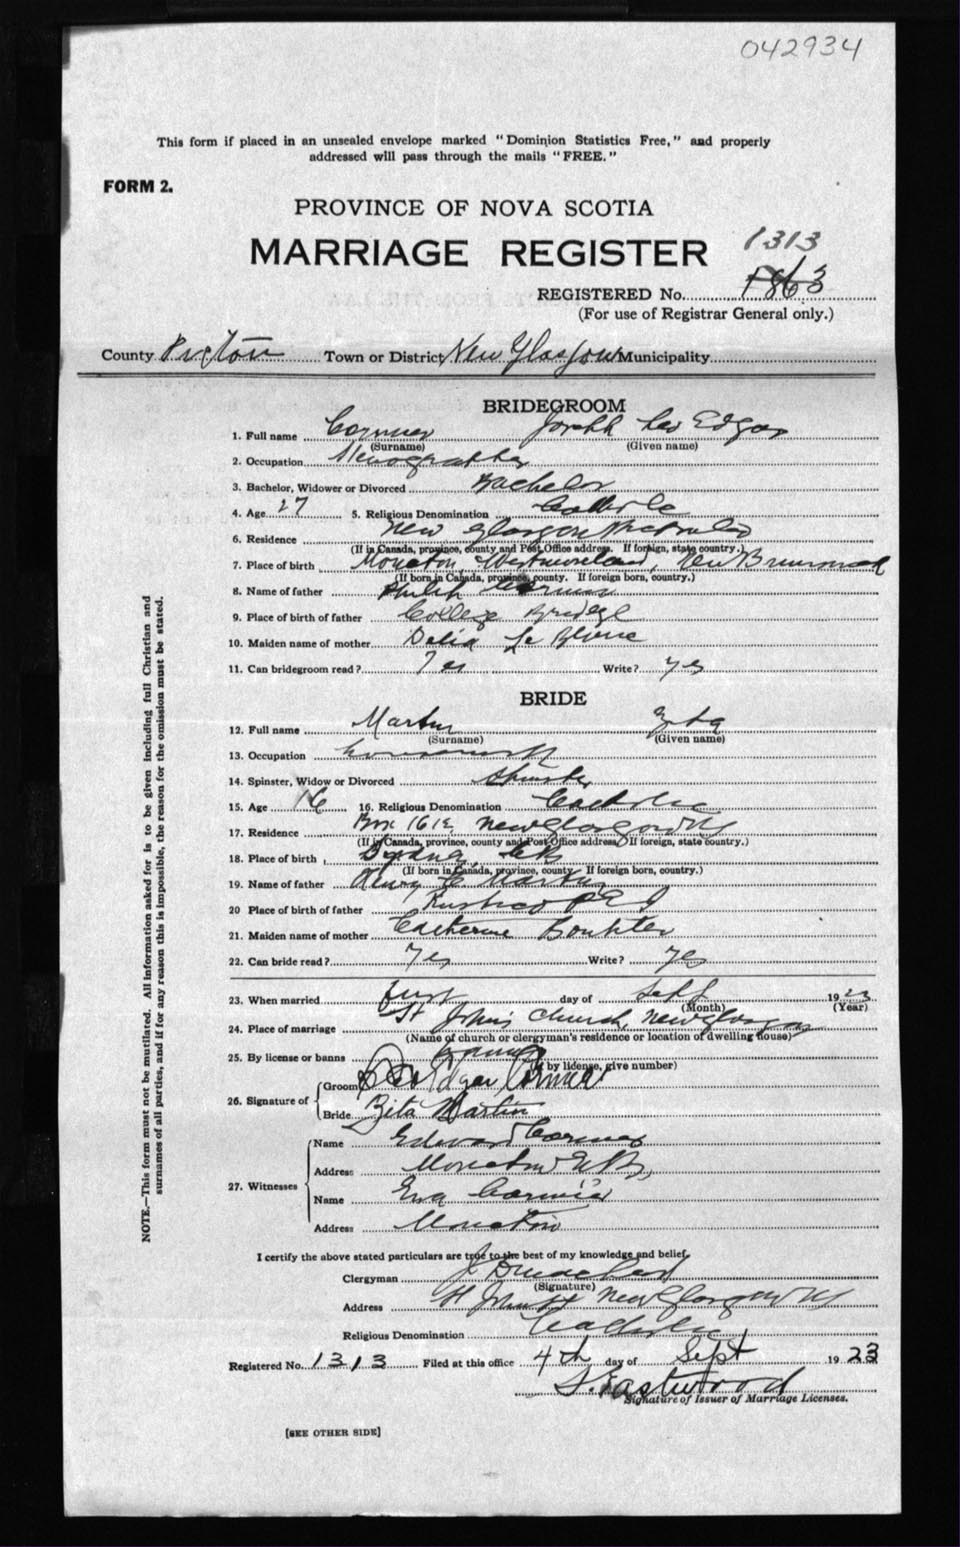 042934
This form if placed in an unsealed envelope marked "Dominion Statistics Free," and properly
addressed will pass through the mails "FREE."
FORM 2.
PROVINCE OF NOVA SCOTIA
MARRIAGE REGISTER 1313
REGISTERED No. 1863
(For use of Registrar General only.)
County Pictou Town or District New Glasgow Municipality
BRIDEGROOM
1. Full name Cormier Joseph Leo Edgar
(Surname) (Given name)
2. Occupation Stenographer
3. Bachelor, Widower or Divorced Bachelor
4. Age 27 5. Religious Denomination Catholic
6. Residence New Glasgow
(If in Canada, province, county and Post Office address. If foreign, state country.)
7. Place of birth Moncton, Westmoreland, New Brunswick
(If born in Canada, province, county. If foreign born, country.)
8. Name of father Philip Cormier
9. Place of birth of father College Bridge
10. Maiden name of mother Delia Le Blanc
11. Can bridegroom read? Yes Write? Yes
BRIDE
12. Full name Martin Zita
(Surname) (Given name)
13. Occupation
14. Spinster, Widow or Divorced Spinster
15. Age 16. Religious Denomination Catholic
17. Residence Box 1612, New Glasgow NS
(If in Canada, province, county and Post Office address. If foreign, state country.)
18. Place of birth Sydney, CB
(If born in Canada, province, county. If foreign born, country.)
19. Name of father Henry Martin
20 Place of birth of father Rustico PEI
21. Maiden name of mother Catherine
22. Can bride read? Yes Write? Yes
23. When married first day of Sept 1923
(Month) (Year)
24. Place of marriage St John's Church, New Glasgow
(Name of church or clergyman's residence or location of dwelling house)
25. By license or banns banns
(If by license, give number)
26. Signature of Groom Leo Edgar Cormier
Bride Zita Martin
27. Witnesses Name Edward Cormier
Address Moncton NB,
Name Eva Cormier
Address Moncton
I certify the above stated particulars are true to the best of my knowledge and belief.
Clergyman J.
(Signature)
Address St John's New Glasgow NS
Religious Denomination Catholic
Registered No. 1313 Filed at this office 4th day of Sept 1923
Eastwood
Signature of Issuer of Marriage Licenses.
[SEE OTHER SIDE]
NOTE.—This form must not be mutilated. All information asked for is to be given including full Christian and
surnames of all parties, and if for any reason this is impossible, the reason for the omission must be stated.